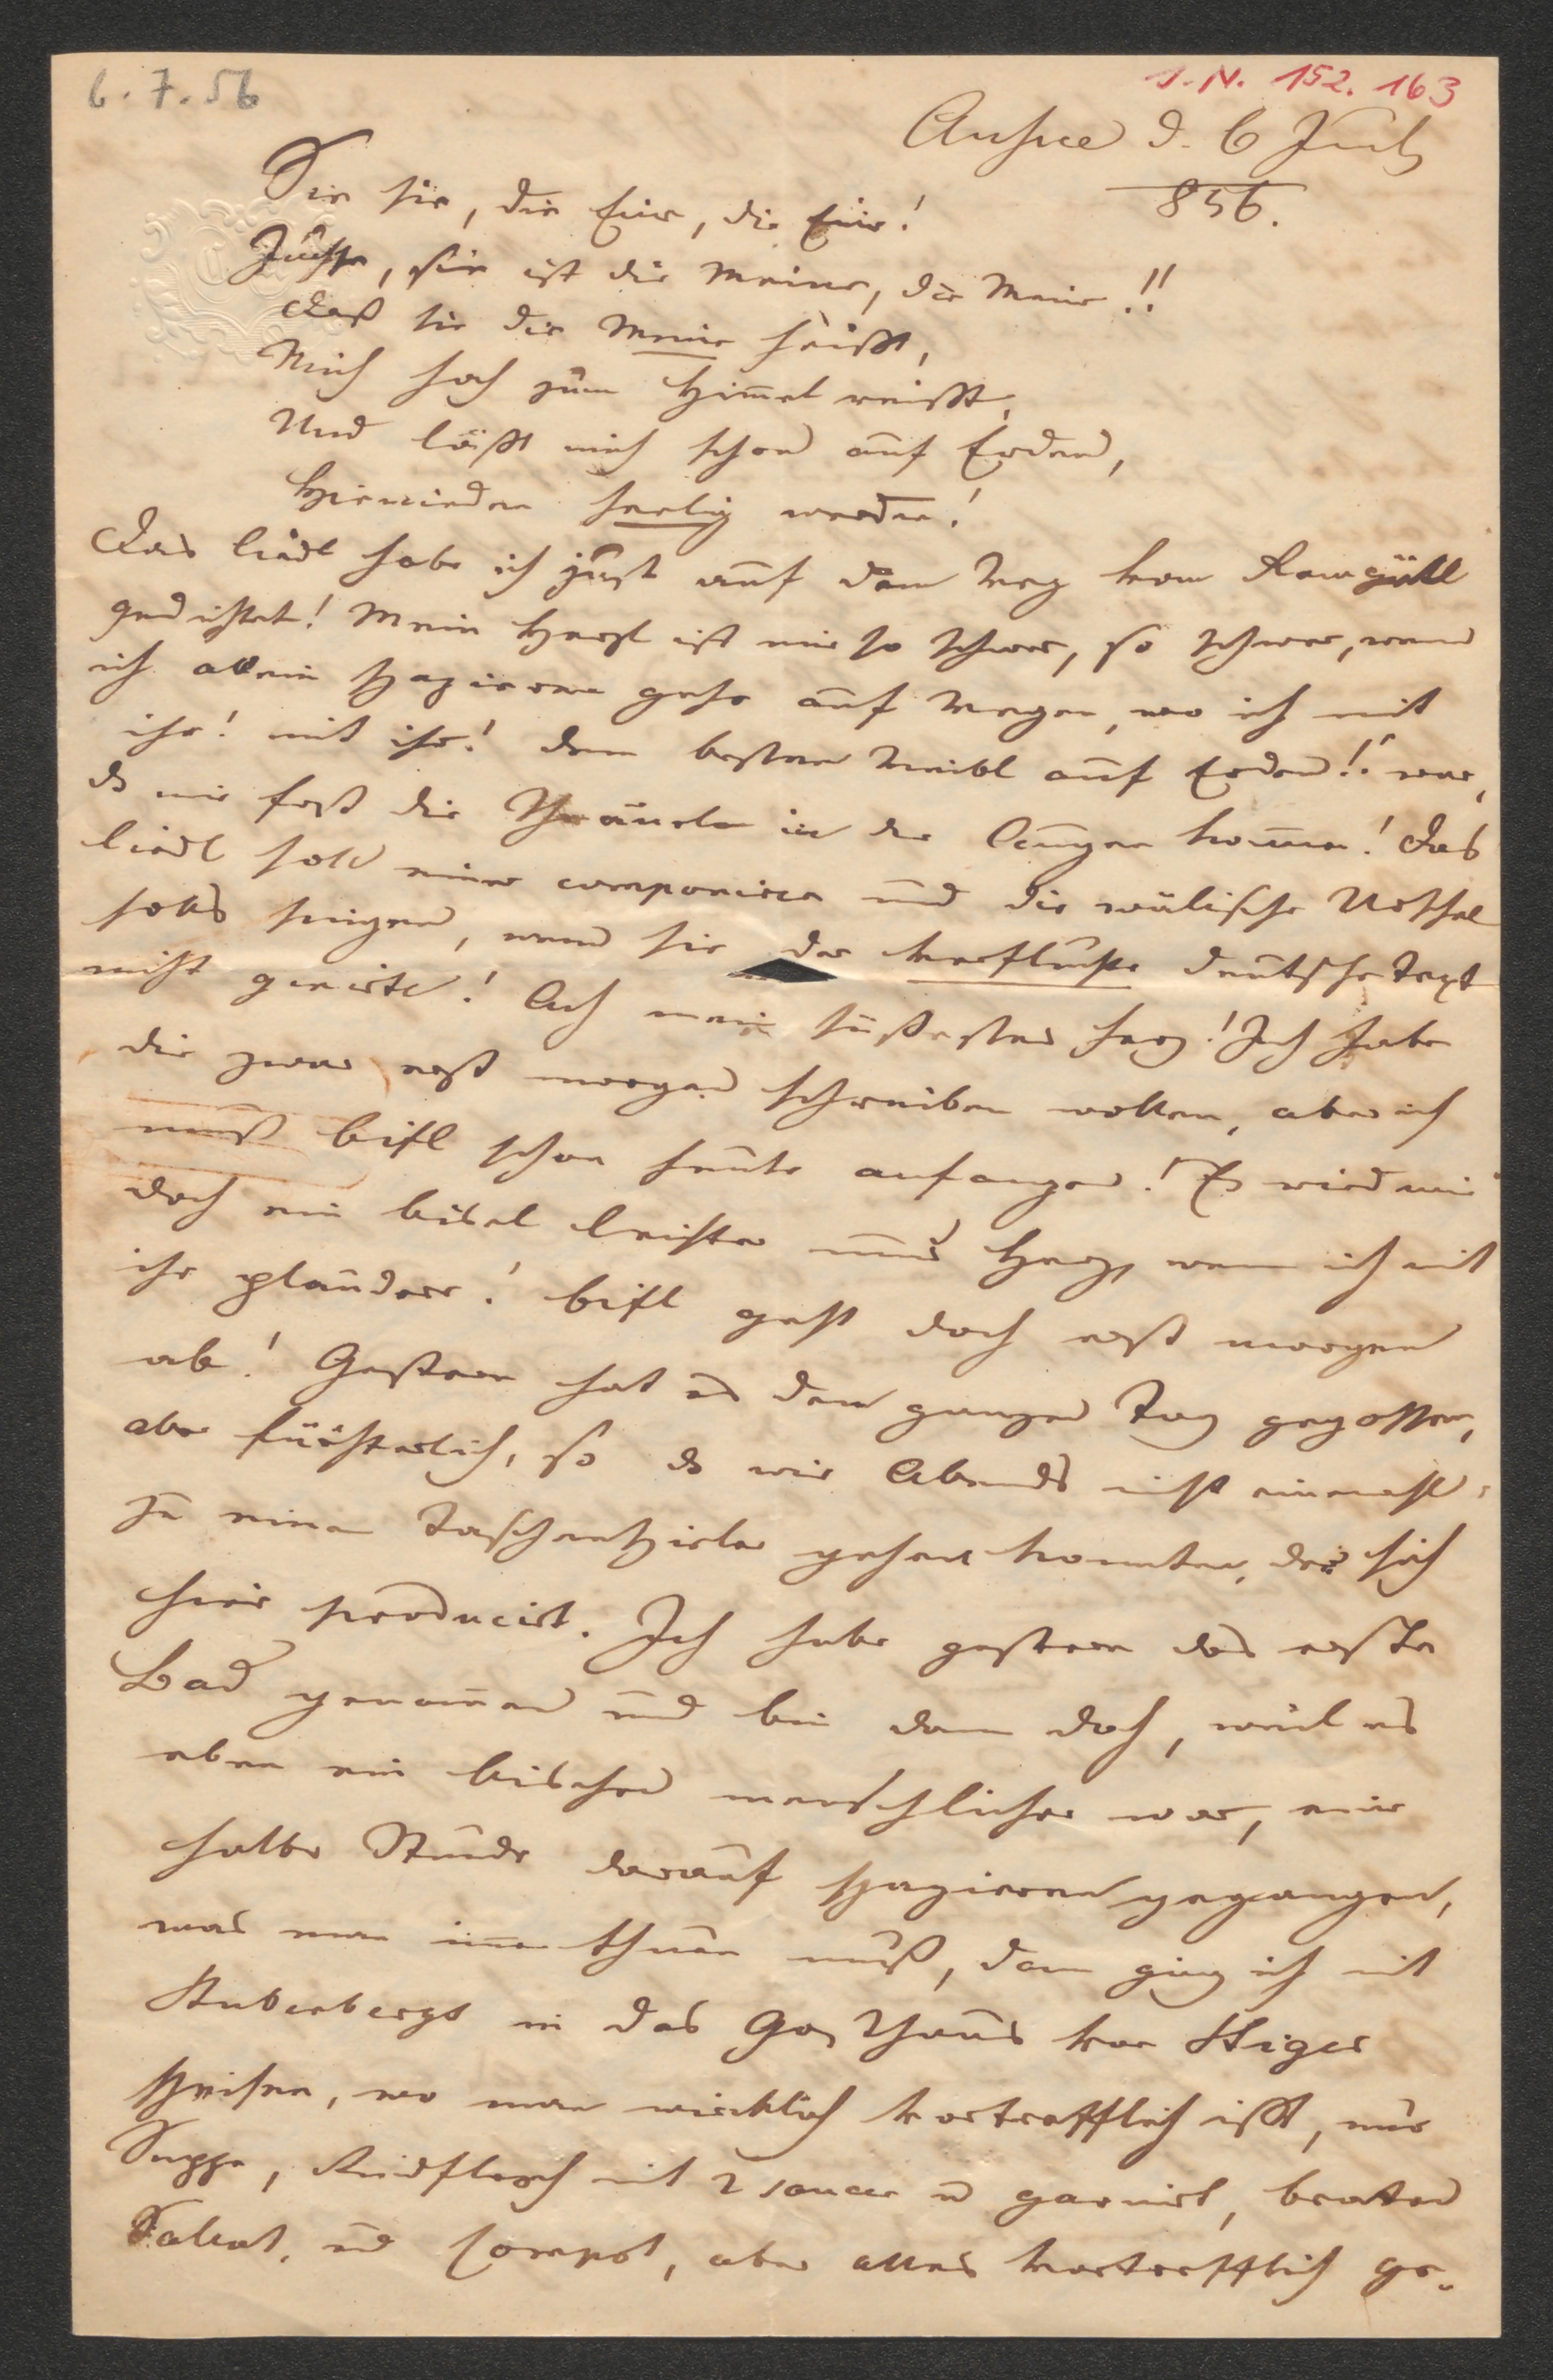 6.7.56
I.N. 152.163
Aussee d. 6 July
856.
Die sie, die Eine, die Eine!
Juchhe, sie ist die Meine, die Meine!!
Daß sie die Meine heißt,
Mich hoch zum Himel reißt,
Und läßt mich schon auf Erden,
Hiernieden seelig werden!
Das Liedl habe ich just auf dem Weg vom Ramgütl
gedichtet! Mein Herzl ist mir so schwer, so schwer, wenn
ich allein spazieren gehe auf Wegen, wo ich mit
ihr! mit ihr! dem besten Weibl auf Erden!! war,
ds mir fast die Thränelen in die Augen komen! Das
Liedl soll einer componiren und die wälische Urschel
solls singen, wenn sie der verfluchte deutsche Text
nicht genirte! Ach mein süßestes Herz! Ich habe
dir zwar erst morgen schreiben wollen, aber ich
muß bissl schon heute anfangen! Es wird mir
doch ein bissel leichter ums Herz, wenn ich mit
ihr plaudere! bissl geht doch erst morgen
ab! Gestern hat es den ganzen Tag gegossen,
aber fürchterlich, so ds wir Abends nicht einmahl
zu einem Taschenspieler gehen konnten, der sich
hier producirt. Ich habe gestern das erste
Bad genomen und bin dann doch, weil es
eben ein bischen menschlicher war, eine
halbe Stunde darauf spazieren gegangen,
was man imer thuen muß, dann ging ich mit
Stubenbergs in das Gasthaus von
speisen, wo man wircklich vortrefflich ißt, nur
Suppe, Rindfleisch mit 2 saucen u garnirt, braten
Salat, und Compot, aber alles vortrefflich ge-